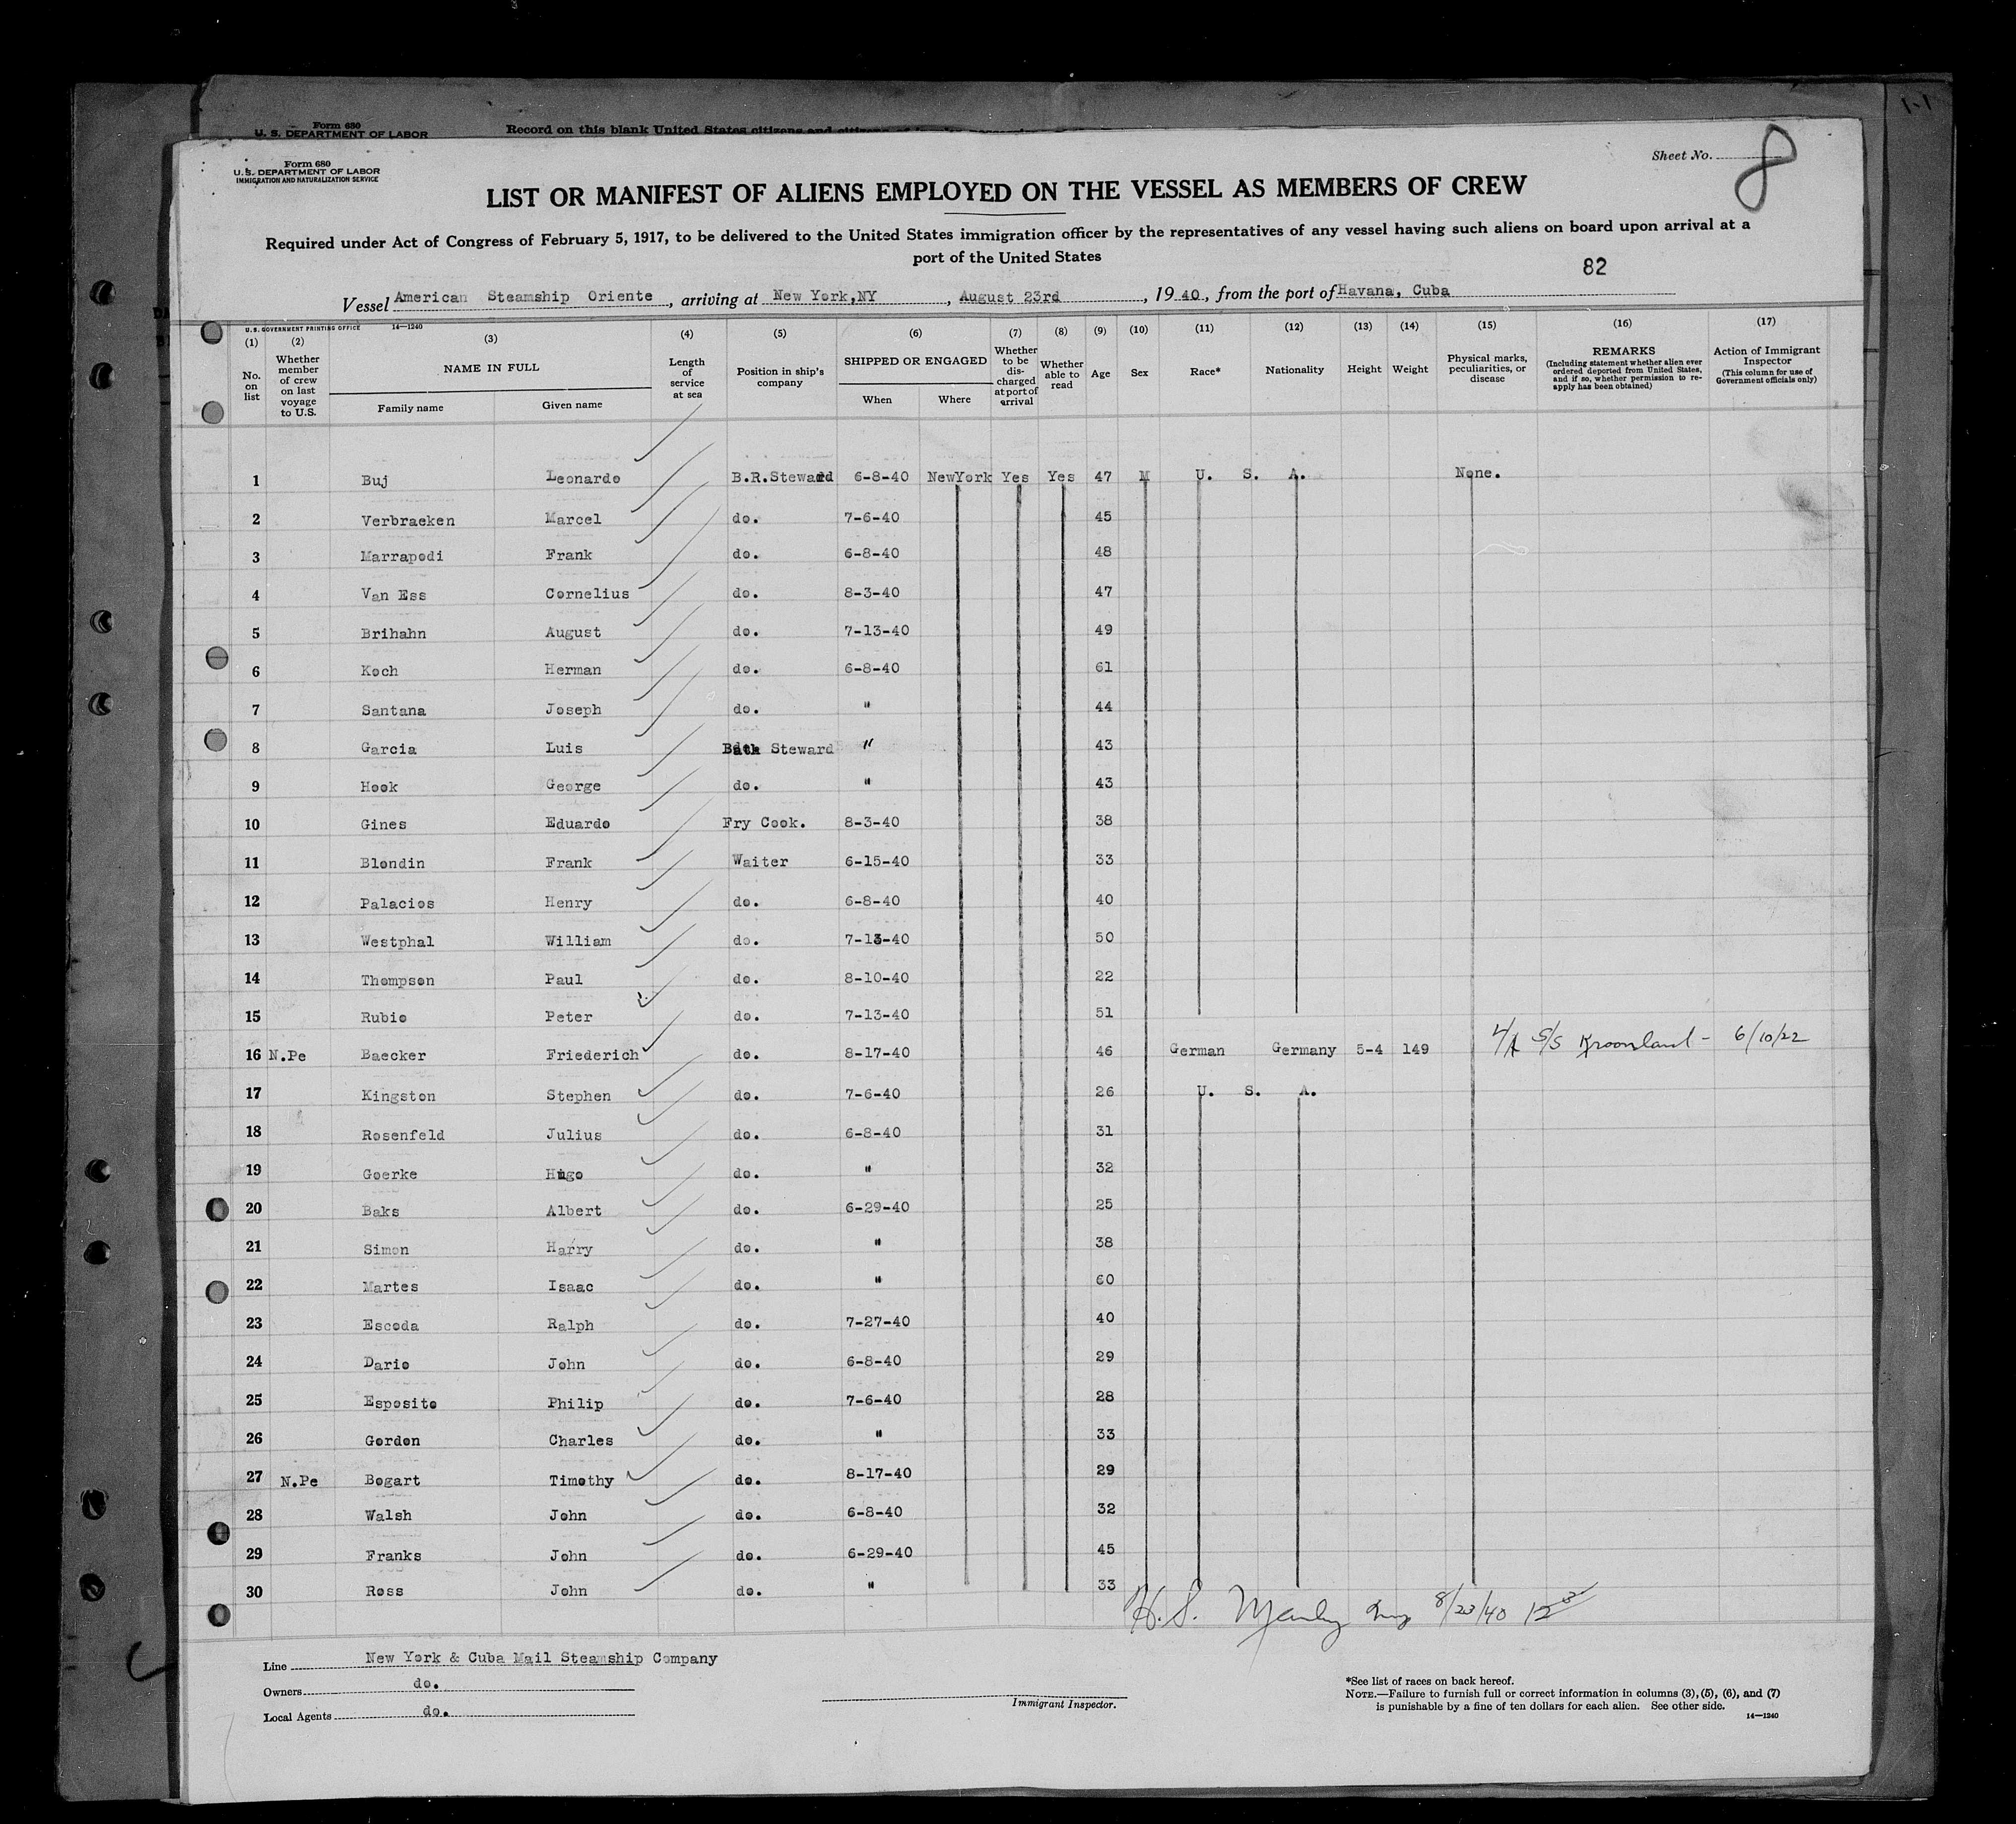 Form 680
U. S. DEPARTMENT OF LABOR
Record on this blank United States citizens and citizens of
Form 680
U. S. DEPARTMENT OF LABOR
IMMIGRATION AND NATURALIZATION SERVICE
Sheet No. 8
LIST OR MANIFEST OF ALIENS EMPLOYED ON THE VESSEL AS MEMBERS OF CREW
Required under Act of Congress of February 5, 1917, to be delivered to the United States immigration officer by the representatives of any vessel having such aliens on board upon arrival at a
port of the United States
82
Vessel American Steamship Oriente, arriving at New York,NY, August 23rd, 1940, from the port of Havana, Cuba
U.S. GOVERNMENT PRINTING OFFICE 14—1240
(1) No. on list
(2) Whether member of crew on last voyage to U.S.
(3) NAME IN FULL
Family name Given name
(4) Length of service at sea
(5) Position in ship's company
(6) SHIPPED OR ENGAGED
When Where
(7) Whether to be discharged at port of arrival
(8) Whether able to read
(9) Age
(10) Sex
(11) Race*
(12) Nationality
(13) Height
(14) Weight
(15) Physical marks, peculiarities, or disease
(16) REMARKS (Including statement whether alien ever ordered deported from United States, and if so, whether permission to reapply has been obtained)
(17) Action of Immigrant Inspector (This column for use of Government officials only)
1 Buj Leonardo B.R.Steward 6-8-40 NewYork Yes Yes 47 M U. S. A. None.
2 Verbraeken Marcel do. 7-6-40 45
3 Marrapodi Frank do. 6-8-40 48
4 Van Ess Cornelius do. 8-3-40 47
5 Brihahn August do. 7-13-40 49
6 Koch Herman do. 6-8-40 61
7 Santana Joseph do. " 44
8 Garcia Luis Bath Steward " 43
9 Hook George do. " 43
10 Gines Eduardo Fry Cook. 8-3-40 38
11 Blondin Frank Waiter 6-15-40 33
12 Palacios Henry do. 6-8-40 40
13 Westphal William do. 7-13-40 50
14 Thompson Paul do. 8-10-40 22
15 Rubio Peter do. 7-13-40 51
16 N.Pe Baecker Friederich do. 8-17-40 46 German Germany 5-4 149 S/S Kroonland - 6/10/22
17 Kingston Stephen do. 7-6-40 26 U. S. A.
18 Rosenfeld Julius do. 6-8-40 31
19 Goerke Hugo do. " 32
20 Baks Albert do. 6-29-40 25
21 Simon Harry do. " 38
22 Martes Isaac do. " 60
23 Escoda Ralph do. 7-27-40 40
24 Dario John do. 6-8-40 29
25 Esposito Philip do. 7-6-40 28
26 Gordon Charles do. " 33
27 N.Pe Bogart Timothy do. 8-17-40 29
28 Walsh John do. 6-8-40 32
29 Franks John do. 6-29-40 45
30 Ross John do. " 33
H.S. Manly Insp 8/23/40
Line New York & Cuba Mail Steamship Company
Owners do.
Local Agents do.
Immigrant Inspector.
*See list of races on back hereof.
NOTE.—Failure to furnish full or correct information in columns (3), (5), (6), and (7)
is punishable by a fine of ten dollars for each alien. See other side.
14—1240